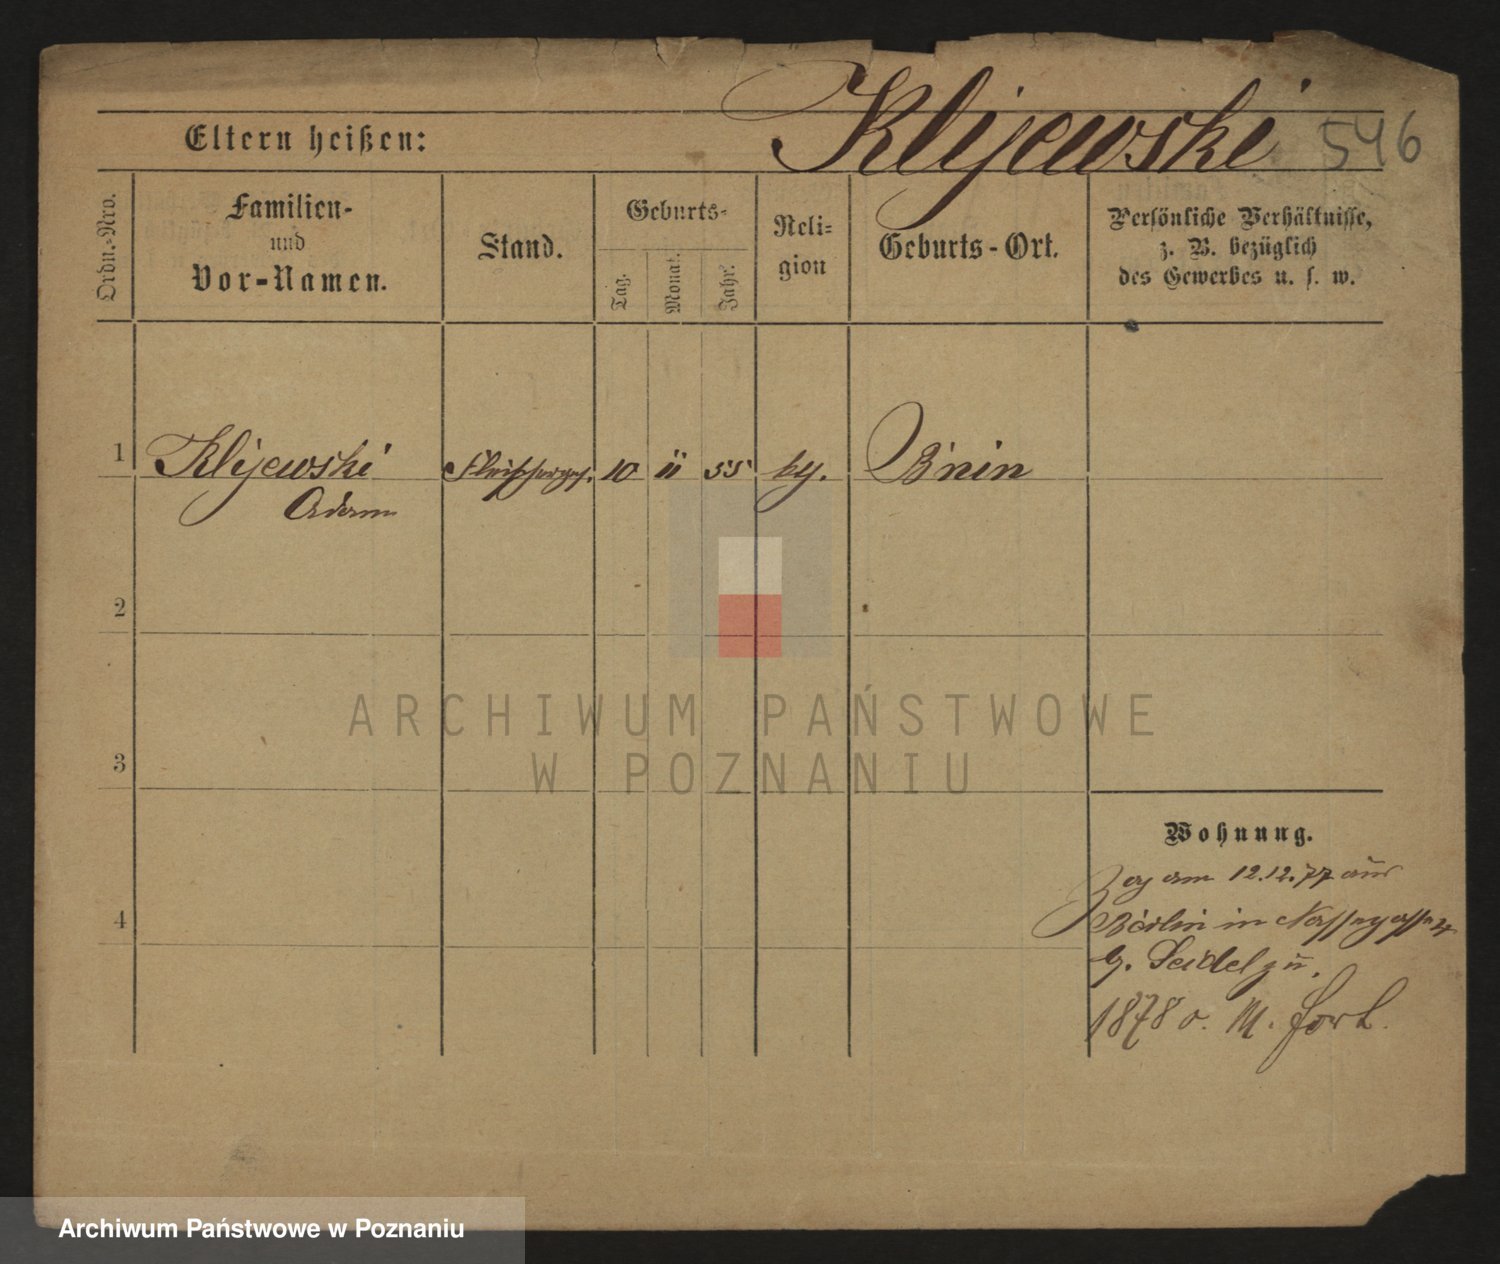 Klijewski 546
Eltern heißen:
Ordn.-Nro.
Familien-
und
Vor-Namen.
Stand.
Geburts-
Tag.
Monat.
Jahr.
Reli-
gion
Geburts-Ort.
Persönliche Verhältnisse,
z. B. bezüglich
des Gewerbes u. s. w.
1 Klijewski Fleischerges. 10 11 55 Bnin
Adam
2
3
4
Wohnung.
Zog am 12.12.77 aus
Berlin in Nassegasse 4
b. Seidel zu.
1878 o. M. fort.
ARCHIWUM PAŃSTWOWE
W POZNANIU
Archiwum Państwowe w Poznaniu